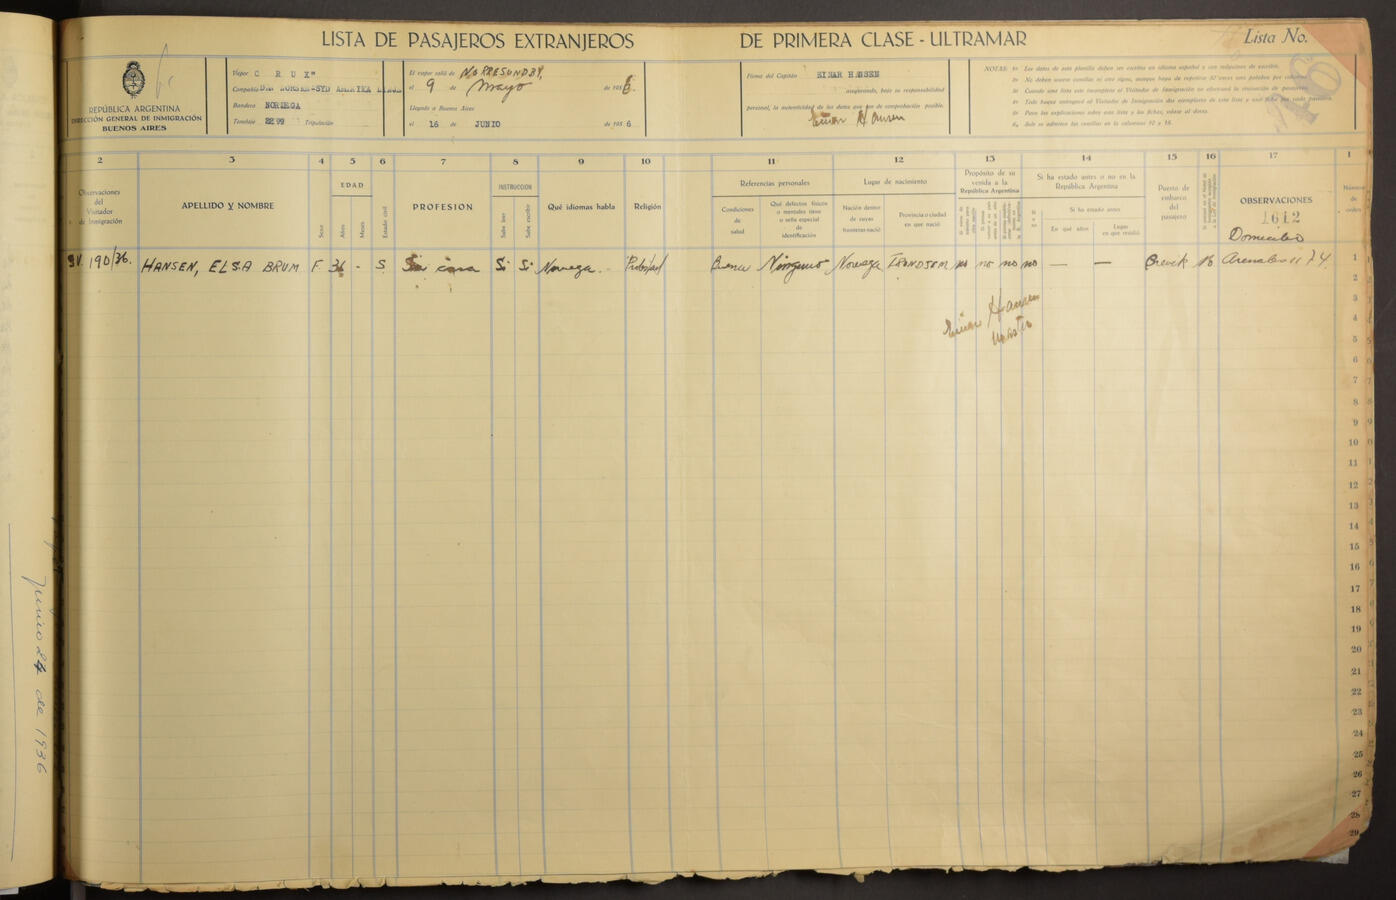 LISTA DE PASAJEROS EXTRANJEROS DE PRIMERA CLASE - ULTRAMAR Lista No.
REPÚBLICA ARGENTINA
DIRECCIÓN GENERAL DE INMIGRACIÓN
BUENOS AIRES
Vapor C R U X"
Compañía
Bandera NORUEGA
Tonelaje 2299 Tripulación
El vapor salió de NORRESUNDBY,
el 9 de Mayo de 193 6.
Llegando a Buenos Aires
el 16 de JUNIO de 193 6
Firma del Capitán EINAR HANSEN
asegurando, bajo su responsabilidad
personal, la autenticidad de los datos que son de comprobación posible.
Einar Hansen
NOTAS: 1º Los datos de esta planilla deben ser escritos en idioma español y con máquinas de escribir.
2 3 4 5 6 7 8 9 10 11 12 13 14 15 16 17 1
Observaciones
del
Visitador
de Inmigración
APELLIDO Y NOMBRE
Sexo
EDAD
Años
Meses
Estado civil
PROFESION
INSTRUCCION
Sabe leer
Sabe escribir
Qué idiomas habla
Religión
Referencias personales
Condiciones
de
salud
Qué defectos físicos
o mentales tiene
o seña especial
de
identificación
Lugar de nacimiento
Nación dentro
de cuyas
fronteras nació
Provincia o ciudad
en que nació
Propósito de su
venida a la
República Argentina
Si ha estado antes o no en la
República Argentina
Si ha estado antes
En qué años
Lugar
en que residió
Puerto de
embarco
del
pasajero
OBSERVACIONES
1612
Domicilio
Número
de
orden
190/36. HANSEN, ELSA BRUM F 36 - S. Sin casa Si Si Noruega Buena Ninguno Noruega no no no no — — Arenales 1174 1
Einar Hansen
2
3
4
5
6
7
8
9
10
11
12
13
14
15
16
17
18
19
20
21
22
23
24
25
26
27
28
29
Junio 24 de 1936